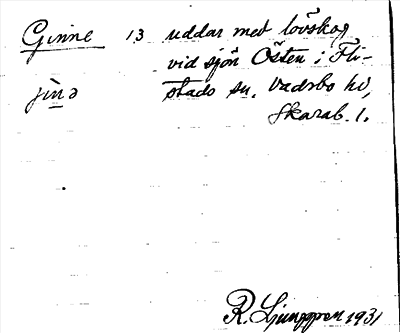 Ginne 13 uddar med lövskog
vid sjön Östen i Fli-
jìnə stads sn, Vadsbo hd,
Skarab. l.
R. Ljunggren 1931